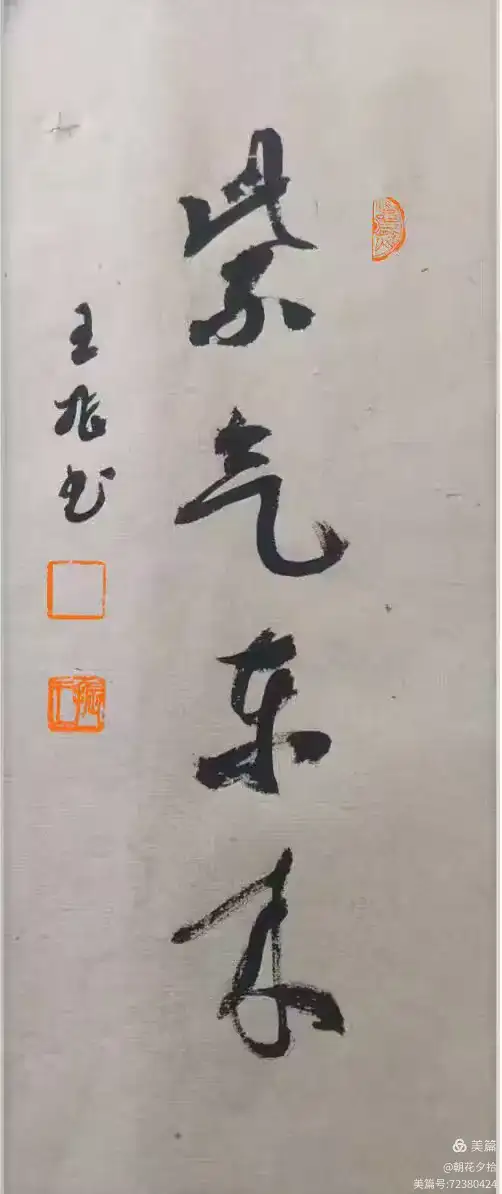 紫气东来
王 书
美篇
@朝花夕拾
美篇号:72380424